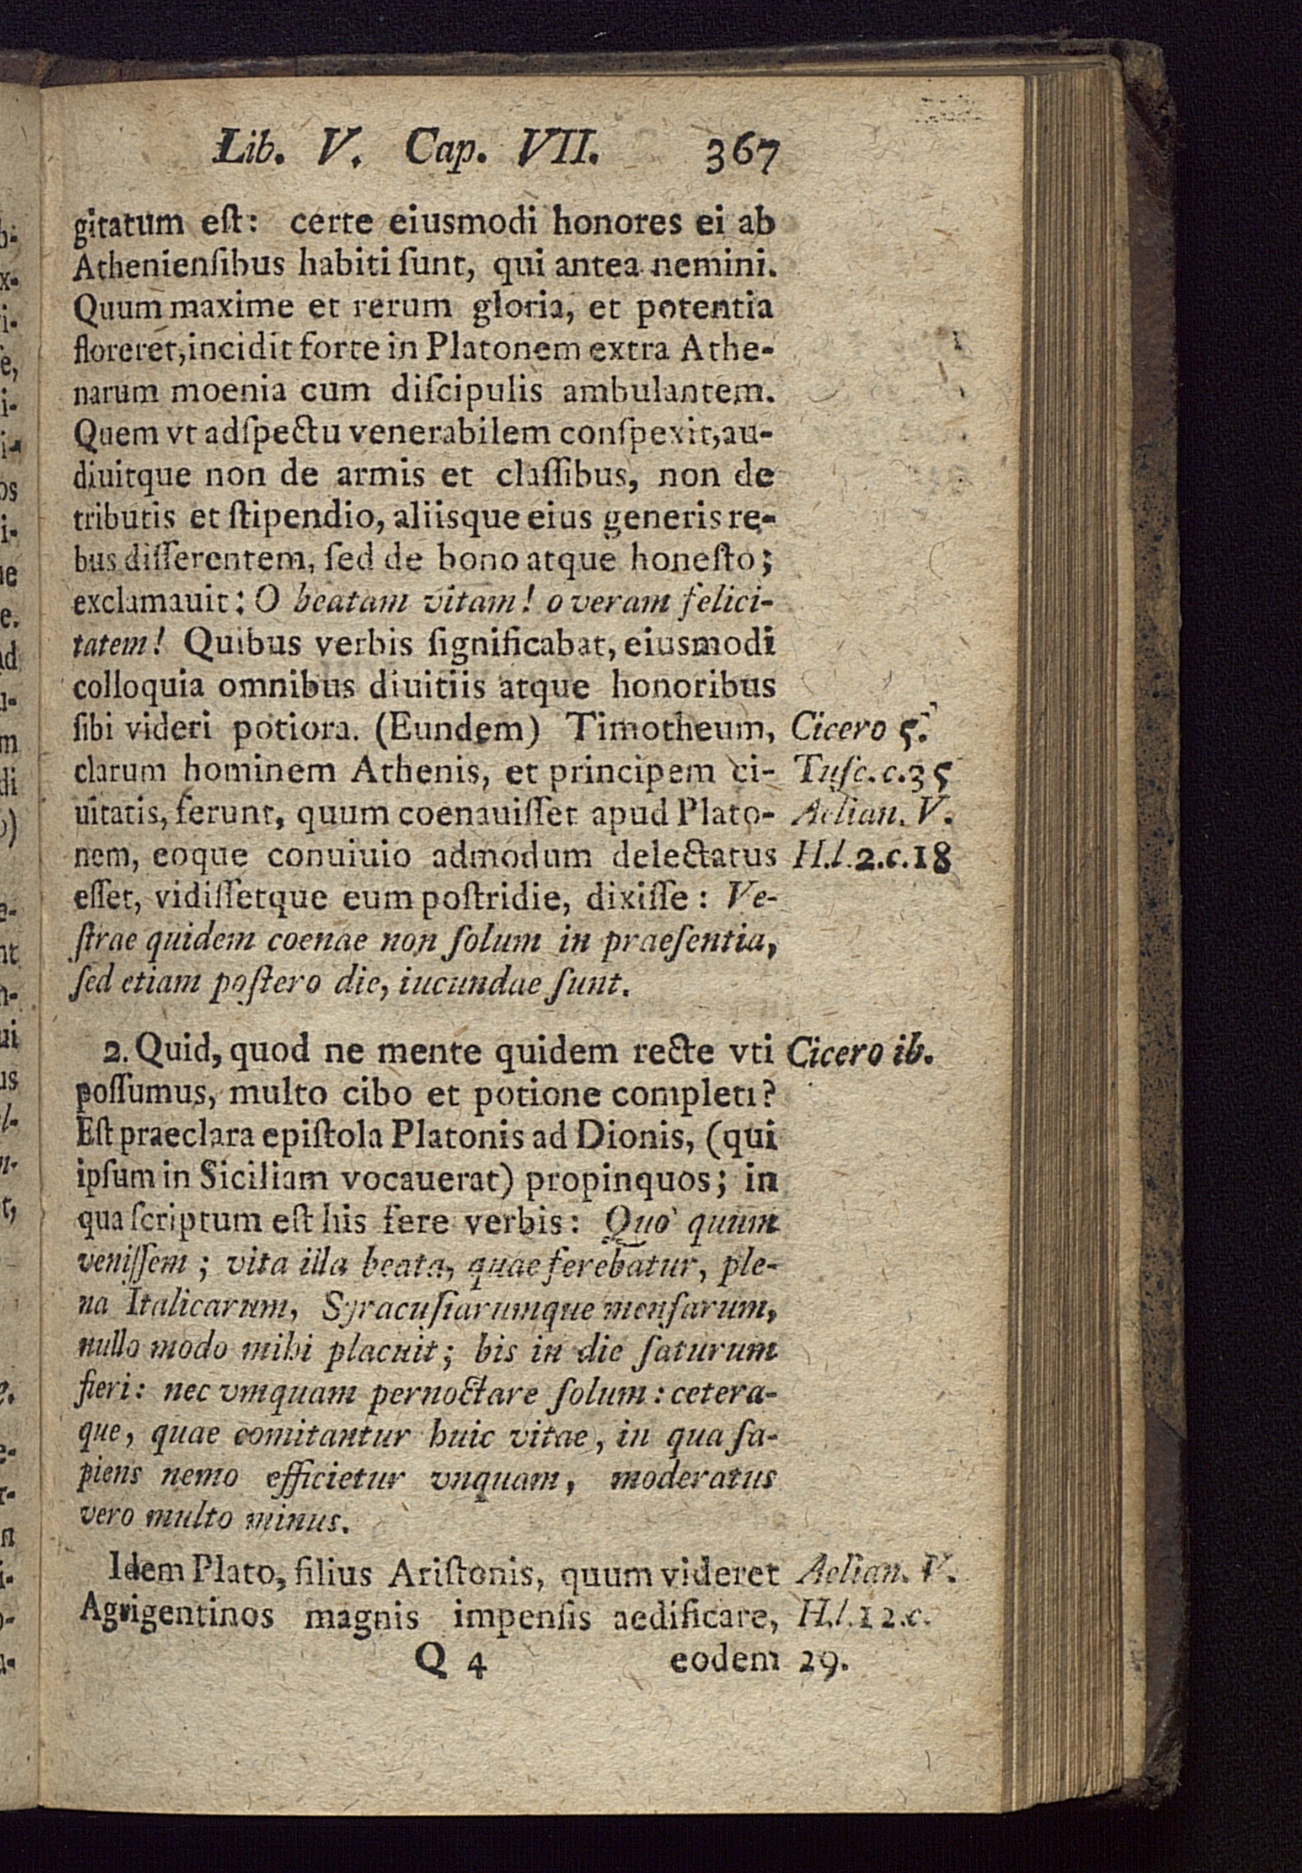 Lib. V. Cap. VII. 367
gitatum eſt: certe eiusmodi honores ei ab
Athenienſibus habiti ſunt, qui antea nemini.
Quum maxime et rerum gloria, et potentia
floreret, incidit forte in Platonem extra Athe-
narum moenia cum diſcipulis ambulantem.
Quem vt adſpectu venerabilem conſpexit, au-
diuitque non de armis et claſſibus, non de
tributis et ſtipendio, aliisque eius generis re-
bus diſſerentem, ſed de bono atque honeſto;
exclamauit: O beatam vitam! o veram felici-
tatem! Quibus verbis ſignificabat, eiusmodi
colloquia omnibus diuitiis atque honoribus
ſibi videri potiora. (Eundem) Timotheum, Cicero 5.
clarum hominem Athenis, et principem ci- Tuſc. c. 35
uitatis, ferunt, quum coenauiſſet apud Plato- Aelian. V.
nem, eoque conuiuio admodum delectatus H. l. 2. c. 18
eſſet, vidiſſetque eum poſtridie, dixiſſe: Ve-
ſtrae quidem coenae non ſolum in praeſentia,
ſed etiam poſtero die, iucundae ſunt.
2. Quid, quod ne mente quidem recte vti Cicero ib.
poſſumus, multo cibo et potione completi?
Eſt praeclara epiſtola Platonis ad Dionis, (qui
ipſum in Siciliam vocauerat) propinquos; in
qua ſcriptum eſt his fere verbis: Quo quum
veniſſem; vita illa beata, quae ferebatur, ple-
na Italicarum, Syracuſiarumque menſarum,
nullo modo mihi placuit; bis in die ſaturum
fieri: nec vmquam pernoctare ſolum: cetera-
que, quae comitantur huic vitae, in qua ſa-
piens nemo efficietur vnquam, moderatus
vero multo minus.
Idem Plato, filius Ariſtonis, quum videret Aelian. V.
Agrigentinos magnis impenſis aedificare, H. l. 12. c.
Q 4 eodem 29.